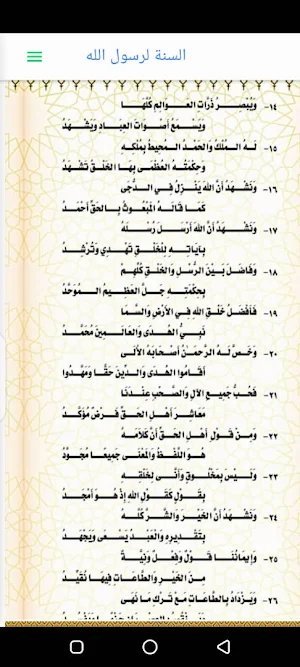 السنة لرسول الله
١٤- وَيُبْصِرُ ذَرَّاتِ العَوَالِمِ كُلِّهَا
وَيَسْمَعُ أَصْوَاتَ العِبَادِ وَيَشْهَدُ
١٥- لَهُ المُلْكُ وَالحَمْدُ المُحِيطُ بِمُلْكِهِ
وَحِكْمَتُهُ العُظْمَى بِهَا الخَلْقُ تَشْهَدُ
١٦- وَنَشْهَدُ أَنَّ اللهَ يَنْزِلُ فِي الدُّجَى
كَمَا قَالَهُ المَبْعُوثُ بِالحَقِّ أَحْمَدُ
١٧- وَنَشْهَدُ أَنَّ اللهَ أَرْسَلَ رُسْلَهُ
بِآيَاتِهِ لِلْخَلْقِ تَهْدِي وَتُرْشِدُ
١٨- وَفَاضَلَ بَيْنَ الرُّسْلِ وَالخَلْقِ كُلِّهِمْ
بِحِكْمَتِهِ جَلَّ العَظِيمُ المُوَحَّدُ
١٩- فَأَفْضَلُ خَلْقِ اللهِ فِي الأَرْضِ وَالسَّمَا
نَبِيُّ الهُدَى وَالعَالَمِينَ مُحَمَّدُ
٢٠- وَخَصَّ لَهُ الرَّحْمَنُ أَصْحَابَهُ الأُلَى
أَقَامُوا الهُدَى وَالدِّينَ حَقًّا وَمَهَّدُوا
٢١- فَحُبُّ جَمِيعِ الآلِ وَالصَّحْبِ عِنْدَنَا
مَعَاشِرَ أَهْلِ الحَقِّ فَرْضٌ مُؤَكَّدُ
٢٢- وَمِنْ قَوْلِ أَهْلِ الحَقِّ أَنَّ كَلَامَهُ
هُوَ اللَّفْظُ وَالمَعْنَى جَمِيعًا مُجَوَّدُ
٢٣- وَلَيْسَ بِمَخْلُوقٍ وَأَنَّى لِخَلْقِهِ
بِقَوْلٍ كَقَوْلِ اللهِ إِذْ هُوَ أَمْجَدُ
٢٤- وَنَشْهَدُ أَنَّ الخَيْرَ وَالشَّرَّ كُلَّهُ
بِتَقْدِيرِهِ وَالعَبْدُ يَسْعَى وَيَجْهَدُ
٢٥- وَإِيمَانُنَا قَوْلٌ وَفِعْلٌ وَنِيَّةٌ
مِنَ الخَيْرِ وَالطَّاعَاتِ فِيهَا نُقَيِّدُ
٢٦- وَيَزْدَادُ بِالطَّاعَاتِ مَعْ تَرْكِ مَا نَهَى